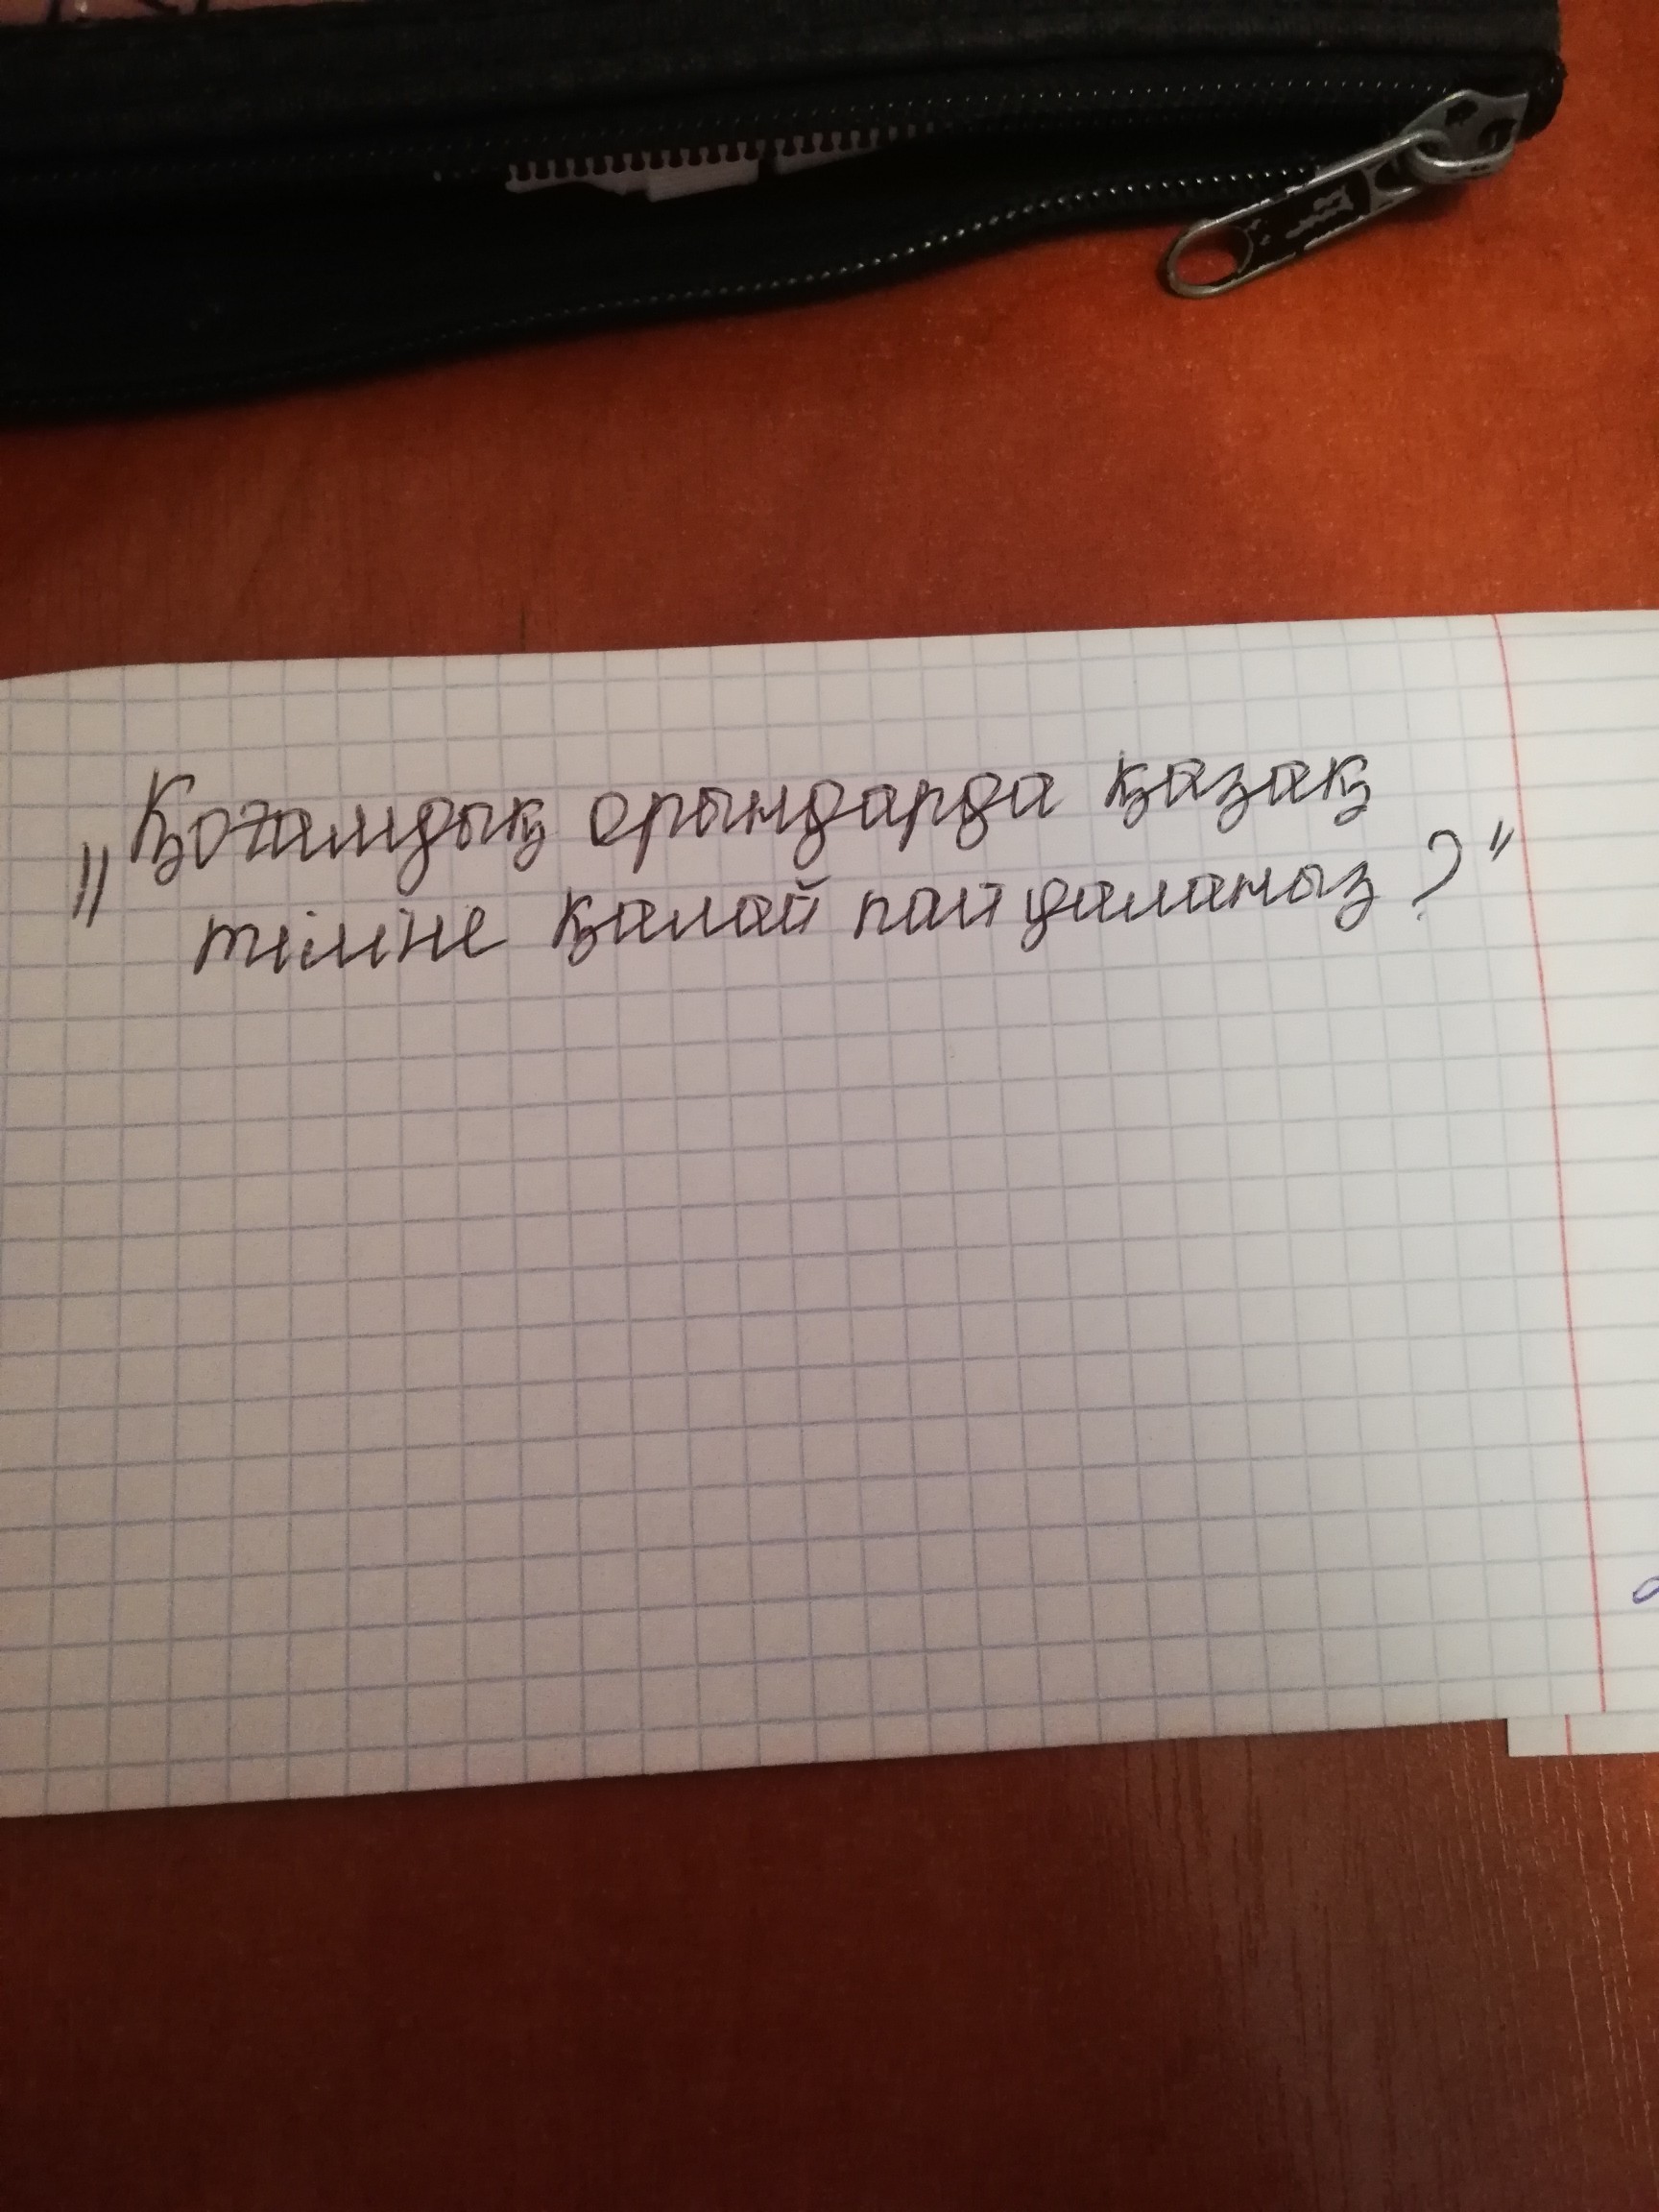 "Қоғамдық орындарда қазақ
тіліне қалай пайдаланыз?"